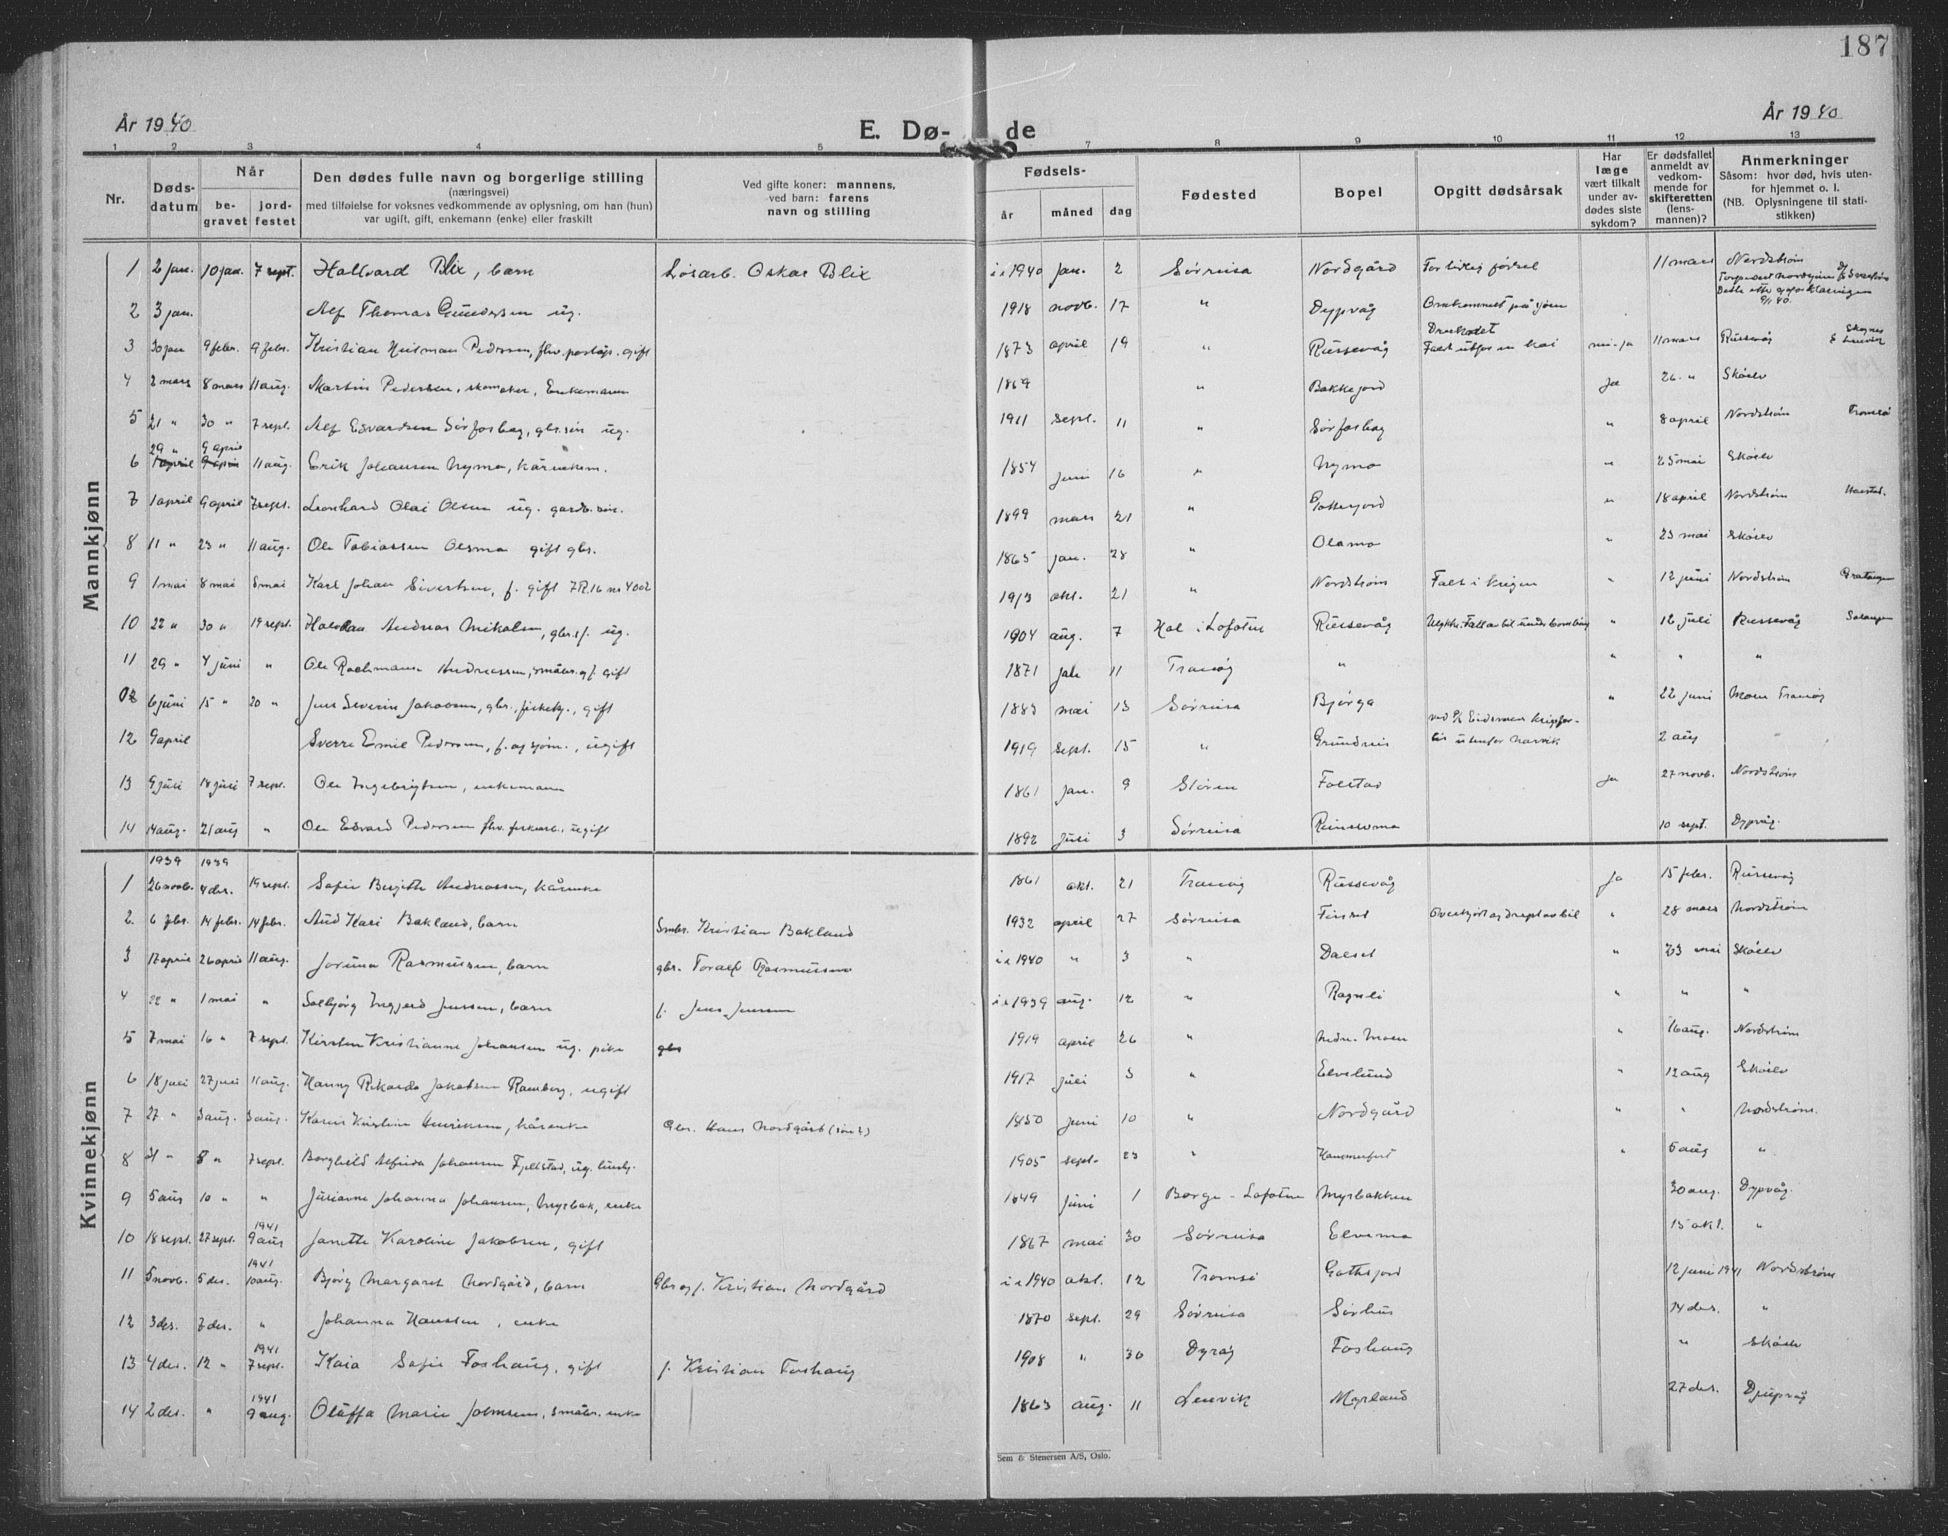 187
År 1940
E. Dø- de
År 1940
1 2 3 4 5 7 8 9 10 11 12 13
Nr.
Døds-datum
Når
be-gravet
jord-festet
Den dødes fulle navn og borgerlige stilling
(næringsvei)
med tilføielse for voksnes vedkommende av oplysning, om han (hun)
var ugift, gift, enkemann (enke) eller fraskilt
Ved gifte koner: mannens,
ved barn: farens
navn og stilling
Fødsels-
år måned dag
Fødested
Bopel
Opgitt dødsårsak
Har
læge
vært tilkalt
under av-
dødes siste
sykdom?
Er dødsfallet
anmeldt av
vedkom-
mende for
skifteretten
(lens-
mannen)?
Anmerkninger
Såsom: hvor død, hvis uten-
for hjemmet o. l.
(NB. Oplysningene til stati-
stikken)
Mannkjønn
1 2 jan. 10 jan. 7 sept. Hallvard Blix, barn Løsarb. Oskar Blix 1940 jan. 2 Sørreisa Nordgård For tidlig fødsel 11 mars Nordstrøm
2 3 jan. Alf Thomas Gundersen ug. 1918 novb. 17 " Dypvåg Omkommet på sjøen
Druknet
3 30 jan 9 febr. 9 febr. Kristian Hilman Pedersen, gift 1873 april 19 " Russevåg Falt utfor en kai 11 mars Russevåg
4 2 mars 8 mars 11 aug. Martin Pedersen, skomaker, Enkemann 1869 " Bakkejord Ja 26 " Skøelv
5 21 " 30 " 7 sept. Alf Edvardsen Sørfosbog, gbr.søn ug. 1911 sept. 11 " Sørfosbog " 8 april Nordstrøm Tromsø
29 " 9 april
6 1 april 9 april 11 aug. Erik Johansen Nymo, kårenkem. 1854 juni 16 " Nymo " 25 mai Skøelv
7 1 april 9 april 7 sept. Leonhard Olai Olsen ug. gardb. søn. 1899 mars 21 " Gottesjord " 18 april Nordstrøm Harstad.
8 11 " 23 " 11 aug. Ole Tobiassen Olsmo gift gbr. 1865 jan. 28 " Olamo " 23 mai Skøelv
9 1 mai 8 mai 8 mai Karl Johan Sivertsen, f. gift 1913 okt. 21 " Nordstrøm Falt i krigen " 12 juni Nordstrøm Gratangen
10 22 " 30 " 19 sept. Halvdan Andreas Nikolsen, gbr. f. ug. 1904 aug. 7 Hol i Lofoten Russevåg " 12 juli Russevåg Salangen
11 29 " 4 juni " Ole Rochmann Andreassen, småbr. og f. gift 1871 11 Tranøy " " " "
6 juni 15 " 20 " Jens Severin Jakobsen, gbr., gift 1883 mai 13 Sørreisa Bjørga " 22 juni Moen Tranøy
12 9 april Sverre Emil Pedersen, f. og sjøm., ugift 1919 sept. 15 " Grundnes utenfor Narvik 2 aug "
13 9 juli 18 juli 7 sept. Ole Ingebrigtsen, enkemann 1861 jan. 9 Støren Folstad Ja 27 novb. Nordstrøm
14 14 aug. 21 aug " Ole Edvard Pedersen ugift 1892 juli 3 Sørreisa Reinelvmo 10 sept. Dypvåg.
Kvinnekjønn
1939 1939
1 26 novb. 4 des. 19 sept. Sofie Birgitte Andreassen, kårenke 1861 okt. 21 Tranøy Russevåg Ja 15 febr. Russevåg
2. 6 febr. 14 febr. 14 febr. Aud Kari Bakland, barn Småbr. Kristian Bakland 1932 april 27 Sørreisa Finset Overkjørt og drept av bil " 28 mars Nordstrøm
3 17 april 26 april 11 aug. Jorunn Rasmussen, barn gbr. Toralf Rasmussen 1940 " 3 " Dalset " 23 mai Skøelv
4 22 " 1 mai " Solbjørg Ingjerd Jenssen, barn f. Jens Jenssen 1939 aug. 12 " Ragnli " " "
5 7 mai 16 " 7 sept. Kirsten Kristianne Johansen ug. pike gbr 1919 april 26 " Nedre Moen " 16 aug. Nordstrøm
6 18 juli 27 juli 11 aug. Hanny Rikarda Jakobsen Ramberg, ugift 1917 juli 3 " Elvelund " 12 aug Skøelv
7 27 " 3 aug. 3 aug. Karen Kristine Henriksen, kårenke Gbr. Hans Nordgård (søn) 1850 juni 10 " Nordgård " " Nordstrøm.
8 31 " 8 " 7 sept. Borghild Alfrida Johansen Fjellstad, ug. 1905 sept. 23 " Hammerfest " 5 aug "
9 5 aug 10 " " Julianne Johanna Johansen, Myrbak, enke 1849 juni 1 Borge - Lofoten Myrbakken 30 aug. Dypvåg.
1941
10 18 sept. 27 sept. 9 aug Janette Karoline Jakobsen, gift 1867 mai 30 Sørreisa Elvemo 15 okt. "
1941
11 5 novb. 5 des. 10 aug. Bjørg Margaret Nordgård, barn Gbr og f. Kristian Nordgård 1940 okt. 12 Tromsø Gottesjord 12 juni 1941 Nordstrøm
12 3 des. 7 des. " Johanna Hanssen, enke 1870 sept. 29 Sørreisa Sørhus 14 des. "
1941
13 4 des. 12 " 7 sept. Kaia Sofie Foshaug, gift f. Kristian Foshaug 1908 " 30 Dyrøy Foshaug " Skøelv
1941
14 2 des. " 9 aug. Oluffa Marie Johnsen, småbr. enke 1863 aug. 11 Lenvik Myrland 27 des. Djupvåg
Sem & Stenersen A/S, Oslo.